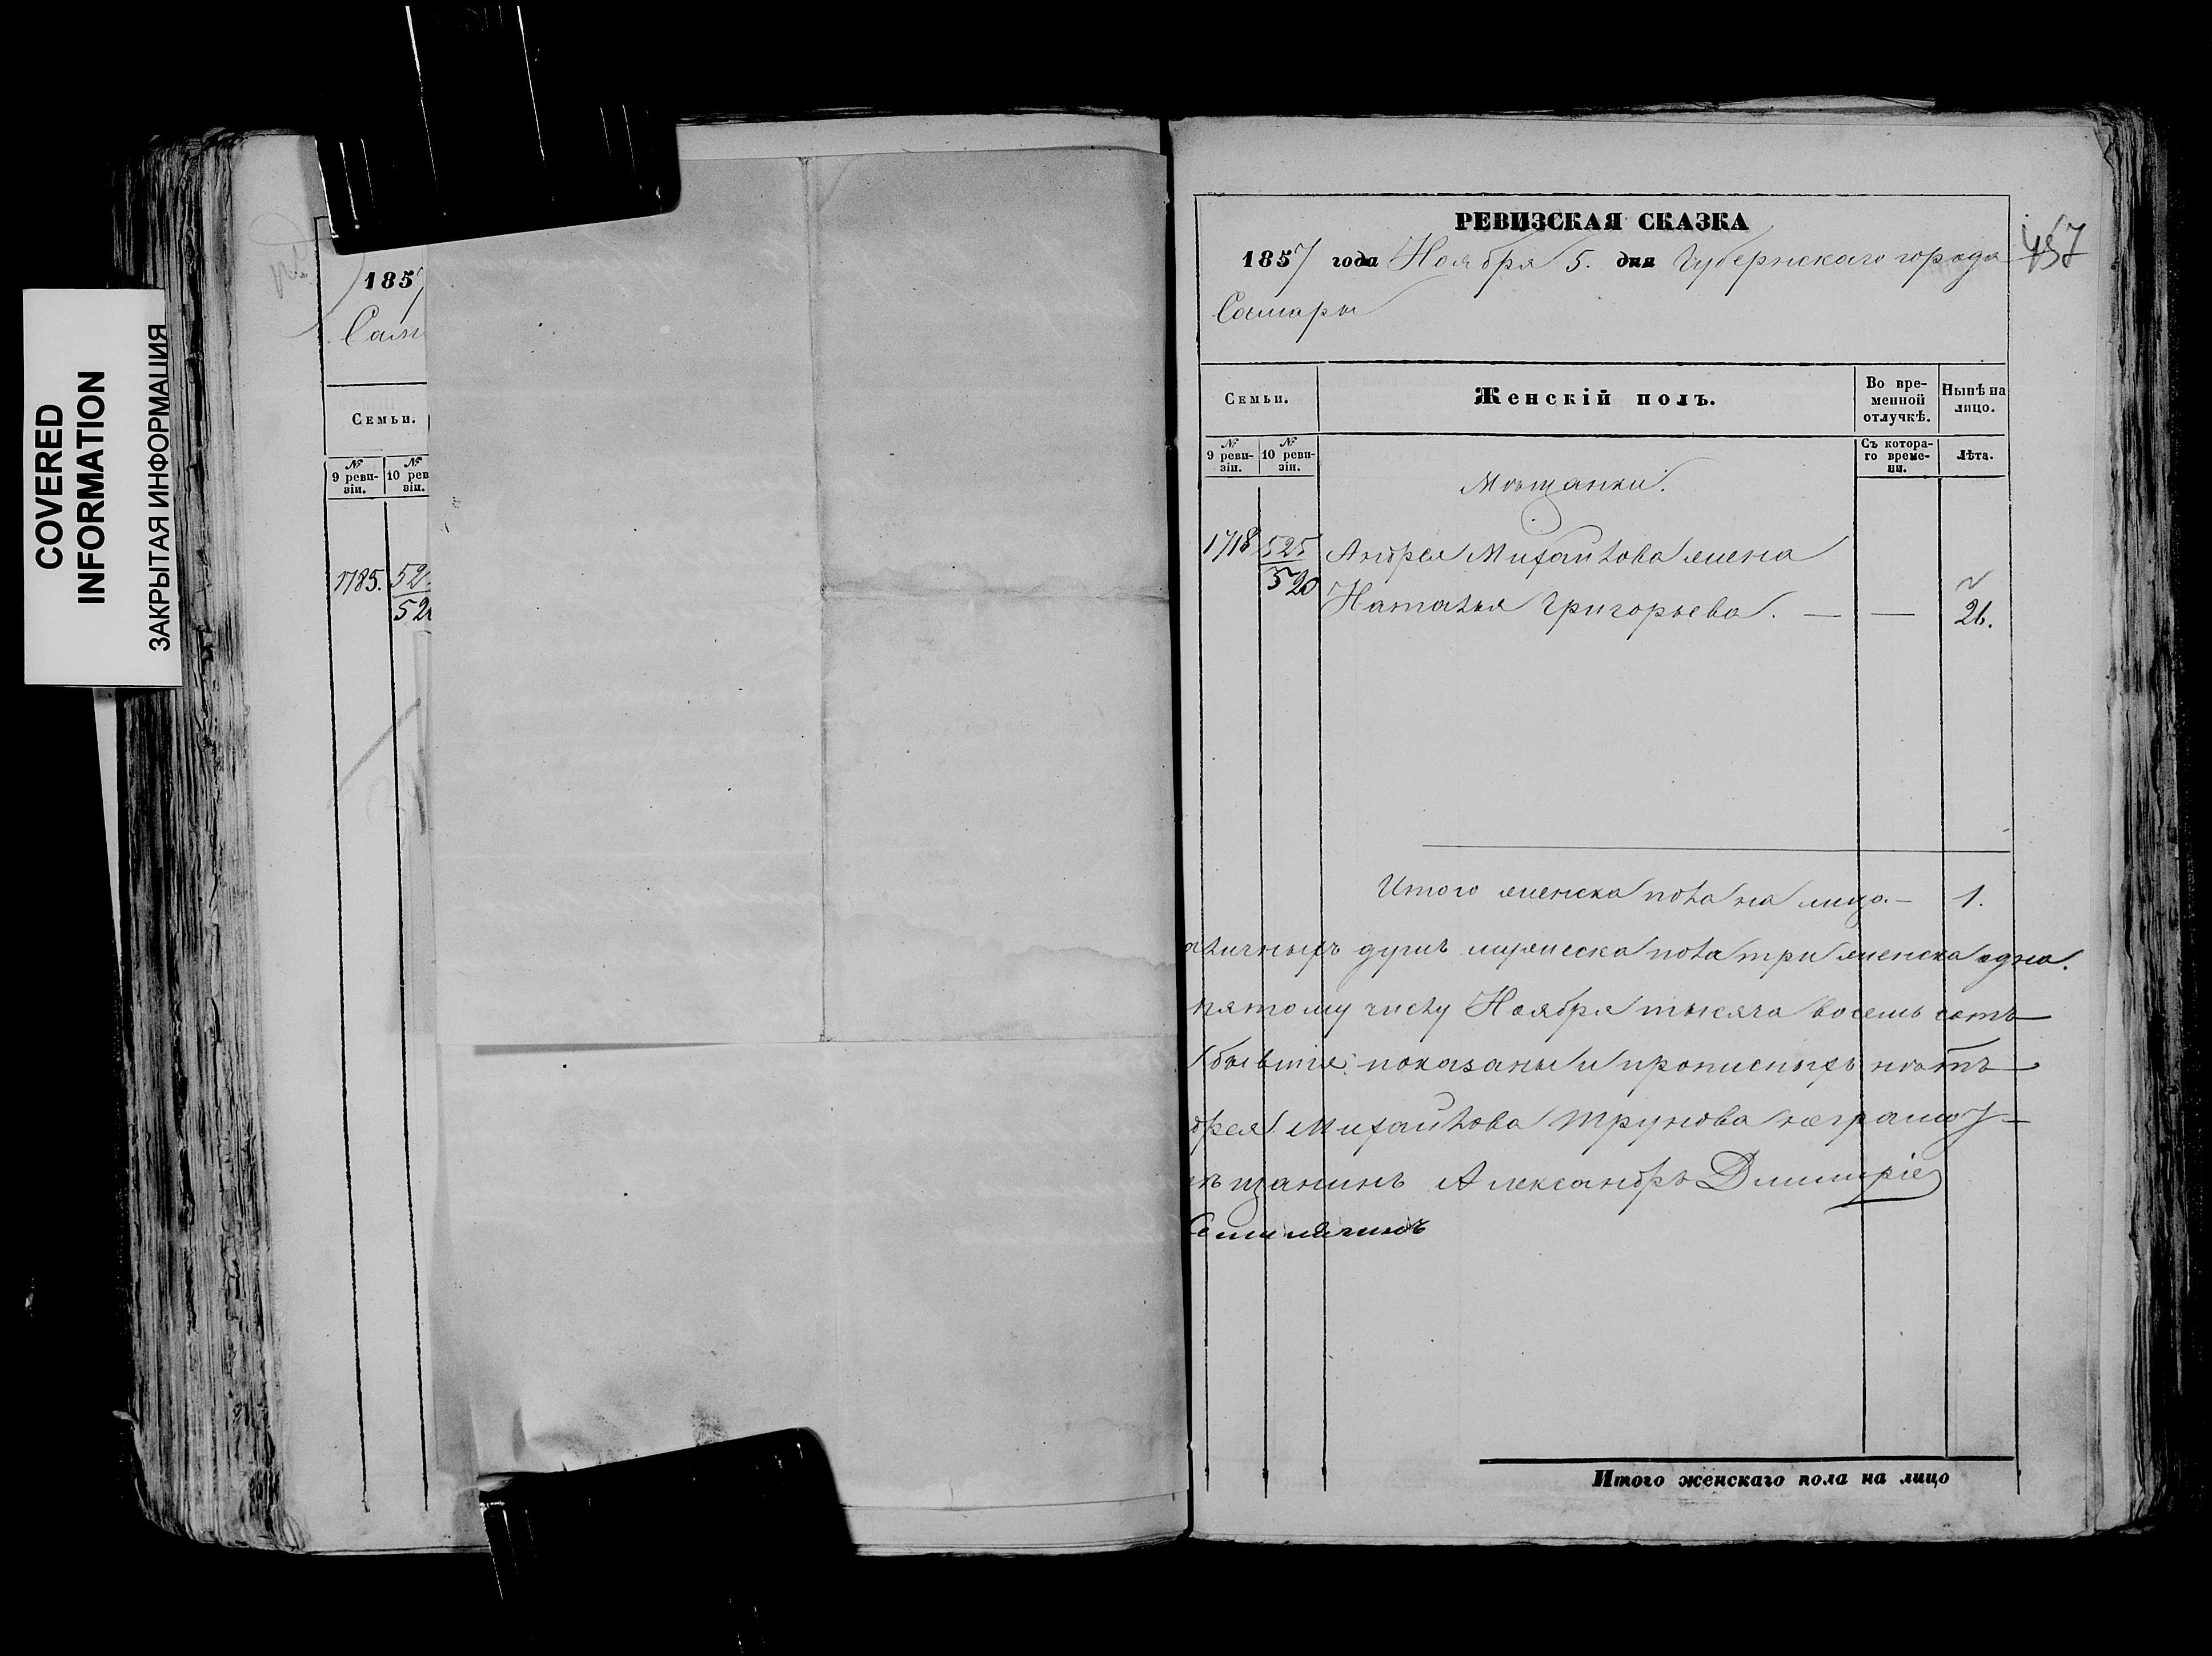 COVERED
INFORMATION
ЗАКРЫТАЯ ИНФОРМАЦИЯ
185
Сам
Семьи.
№ 9 реви-зіи. № 10 рев зіи.
1785. 52
52
РЕВИЗСКАЯ СКАЗКА
1857 года Ноября 5. дня Губернскаго города
Самары
457
Семьи. Женскій полъ. Во вре-менной отлучкѣ. Нынѣ на лицо.
№ 9 реви-зіи. № 10 реви-зіи. Съ котора-го време-ни. Лѣта.
Мѣщанки.
1718 525 Андрея Михайлова жена
520 Наталья Григорьева. — — 26.
Итого женска пола на лицо. — 1.
аличныхъ душъ мужеска пола три женска одна.
пятому числу Ноября тысяча восемь сотъ
бывшіе показаны и прописныхъ нѣтъ
дрея Михайлова Трунова неграмот
щанинъ Александръ Дмитріе
Итого женскаго пола на лицо